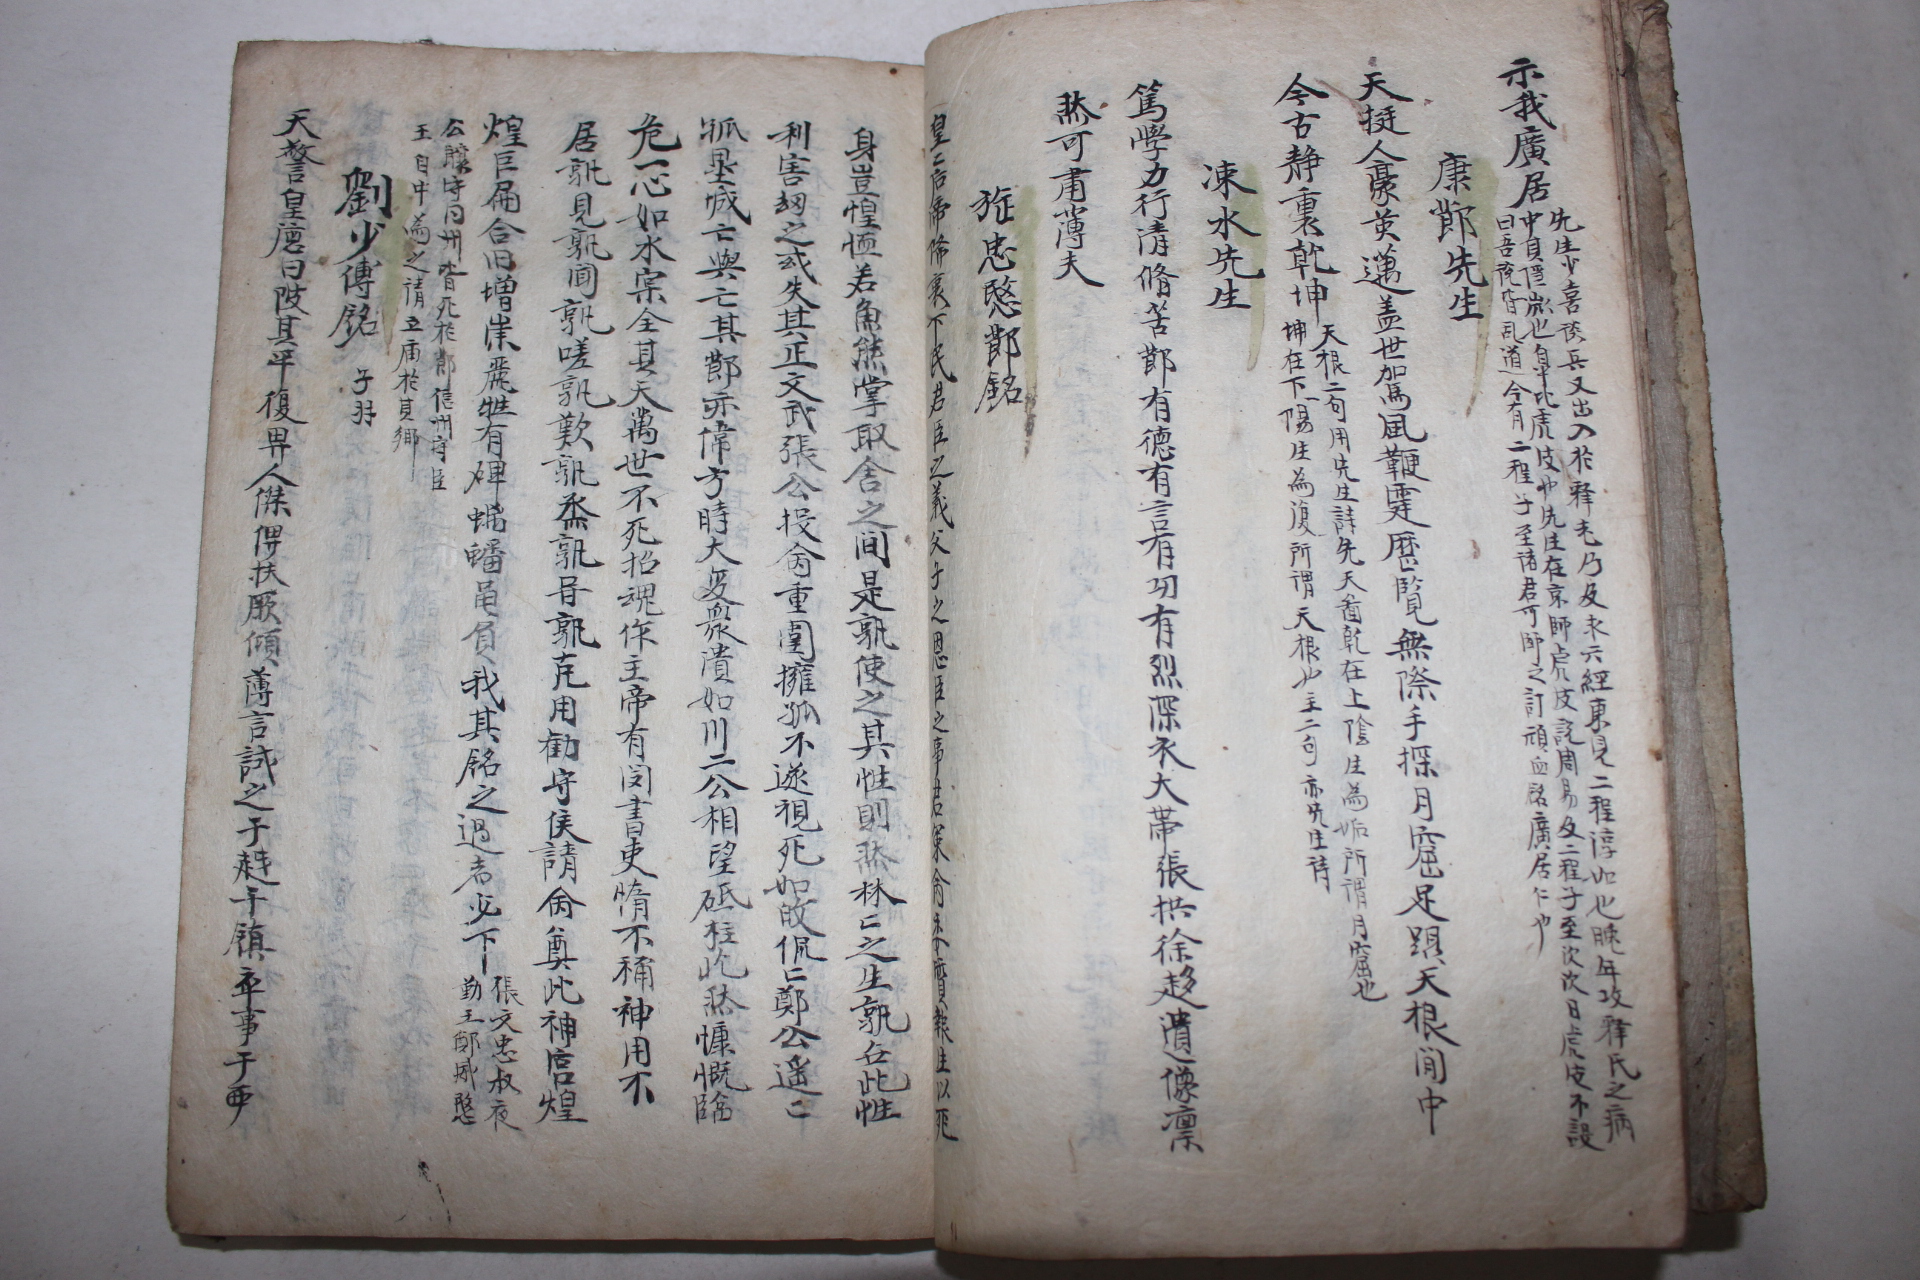 示我廣居
先生少喜談兵又出入於釋老乃反求六經東見二程淳如也晩年攻釋氏之病
中年比虎皮也先生在京師虎皮說周易及二程子至次日虎皮不設
曰吾說皆亂道今有二程子至諸君可師之訂頑西銘廣居仁也
康節先生
天挺人豪英邁盖世加駕風鞭霆歷覽無際手探月窟足躡天根閒中
今古静裏乾坤
天根二句用先生詩先天圖乾在上陰生為姤所謂月窟也
坤在下陽生為復所謂天根也主二句亦先生詩
涑水先生
篤學力行清脩苦節有德有言有功有烈深衣大帶張拱徐趍遺像凛
然可肅薄夫
旌忠愍節銘
皇二后帝降衷下民君臣之義父子之恩臣之事君
身豈惶恤若魚熊掌取舍之間是孰使之其性則然林二之生孰無此性
利害刼之或失其正文武張公投命重圍擁孤不遂視死如飴侃二鄭公遥二
孤壘城亡與亡其節亦偉方時大變衆潰如川二公相望砥柱屹然慷慨臨
危一心如水宗全其天萬世不死招魂作主帝有閔書吏惰不稱神用不
居孰見孰聞孰嗟孰歎孰烝孰㝵孰克用勸守侯請命奠此神宫煌
煌巨扁合旧增崇麗牲有碑螭蟠黾負我其銘之過者必下
張文忠叔夜
勤王鄭威愍
公驤守同州皆死於節信州守臣
王自中為之請立庙於其鄉
劉少傅銘
子羽
天警皇德曰陂其平復畀人傑俾扶厥傾薄言試之于越于鎮卒事于